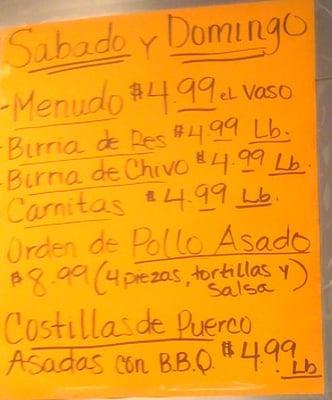 Sabado y Domingo
-Menudo $4.99 el vaso
-Birria de Res $4.99 Lb.
-Birria de Chivo $4.99 Lb.
Carnitas $4.99 Lb.
Orden de Pollo Asado
$8.99 (4 piezas, tortillas y
salsa)
Costillas de Puerco
Asadas con B.B.Q. $4.99 Lb